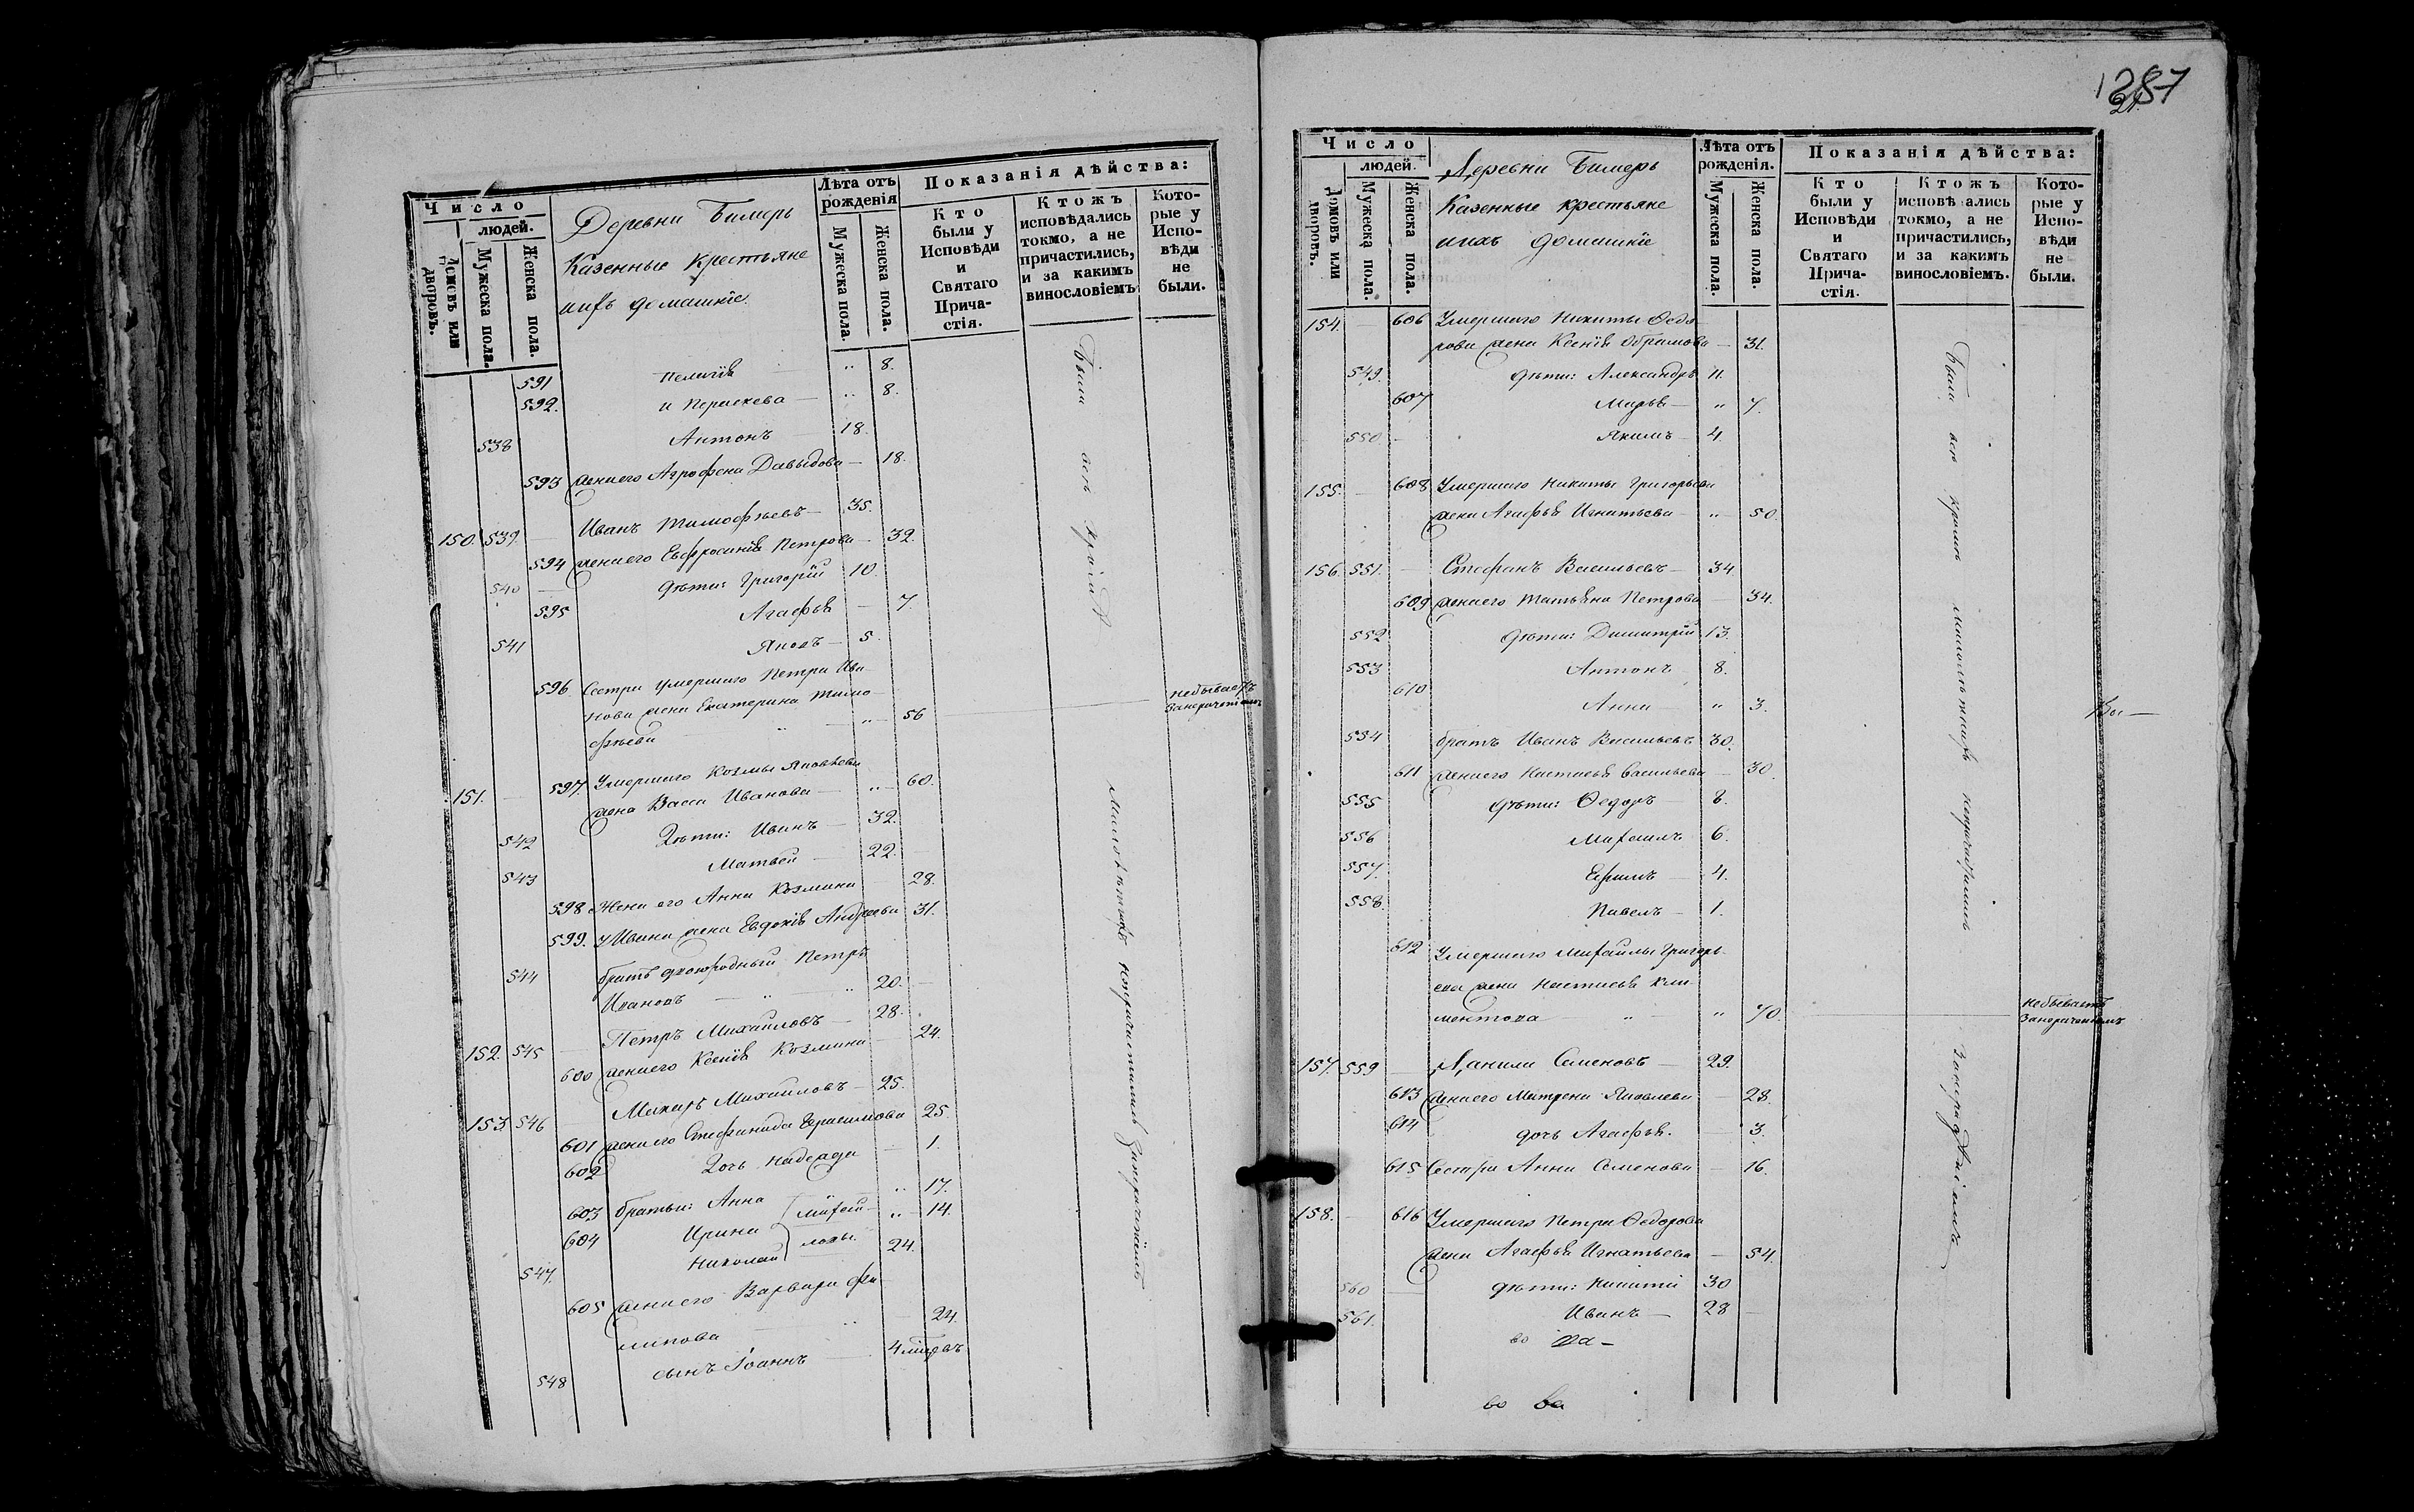 Число
людей.
Домовъ или дворовъ.
Мужеска пола.
Женска пола.
Деревни Бимерь
Казенные крестьяне
ихъ домашніе.
Лѣта отъ рожденія
Мужеска пола.
Женска пола.
Показанія дѣйства:
Кто были у Исповѣди и Святаго Прича-стія.
Ктожъ исповѣдались токмо, а не причастились, и за какимъ винословіемъ
Кото-рые у Испо-вѣди не были.
591 Пелагія „ 8.
592. и Параскева — „ 8.
538 Антонъ 18.
593 жена его Агрофена Давыдова — 18.
150. 539. Иванъ Тимофѣевъ — 35.
594 жена его Евфросинія Петрова — 32.
540 — дѣти: Григорій 10.
595 Агафья — 7.
541 Яковъ — 5.
596 Сестра умершаго Петра Ива-
нова жена Екатерина Тимо-
фѣева „ — 56
небываетъ
151. — 597. Умершаго Козмы Яковлева
жена Васса Иванова — „ — 60.
542 Дѣти: Иванъ — 32.
543 Матвей — 22.
598 Жена его Анна Козмина — 28.
599. у Ивана жена Евдокія Андреева 31.
544 братъ двоюродный Петръ
Ивановъ — „ „ 20. —
152. 545 — Петръ Михайловъ — 28.
600 жена его Ксенія Козмина — 24.
153. 546 — Макаръ Михайловъ — 25.
601 жена его Степанида Герасимова 25.
602 Дочь Надежда — 1.
603 братьи: Анна „ 17.
604 Ирина Михай- „ 14.
547. Николай ловы. 24.
605 жена его Варвара Фи-
липова „ 24.
548 сынъ Іоаннъ — 4
Были всѣ кромѣ
1287
21.
Число
людей.
Домовъ или дворовъ.
Мужеска пола.
Женска пола.
Деревни Бимерь
Казенные крестьяне
ихъ домашніе
Лѣта отъ рожденія.
Мужеска пола.
Женска пола.
Показанія дѣйства:
Кто были у Исповѣди и Святаго Прича-стія.
Ктожъ исповѣ ались токмо, а не причастились, и за какимъ винословіемъ.
Кото-рые у Испо-вѣди не были.
154. — 606 Умершаго Никиты Ѳедо-
рова жена Ксенія — 31.
549. дѣти: Александръ 11.
607 Марья — „ 7.
550 — Якимъ — 4.
155. — 608 Умершаго Никиты Григорьева
жена Агафья Игнатьева — „ — 50.
156. 551. — Стефанъ Васильевъ — 34.
609 жена его Татьяна Петрова — 34.
552 дѣти: Димитрій 13.
553 Антонъ — 8.
610 Анна — „ 3.
554 братъ Иванъ Васильевъ 30.
611 жена его Настасья Васильева — 30.
555 дѣти: Ѳедоръ — 8.
556 Михаилъ 6.
557. Ефимъ — 4.
558. Павелъ — 1.
612 Умершаго Михайлы Григорь-
ева жена Настасья Кли-
ментова — „ — „ 70.
небываетъ
157. 559 — Данила Семеновъ — 29.
613 жена его Матрена Яковлева — 28.
614 дочь Агафья. — 3.
615 Сестра Анна Семенова — 16.
158. — 616 Умершаго Петра Ѳедорова
жена Агафья Игнатьева — 54.
560 — дѣти: Никита 30
561. Иванъ — 28
во
во
Были всѣ кромѣ малолѣтнихъ